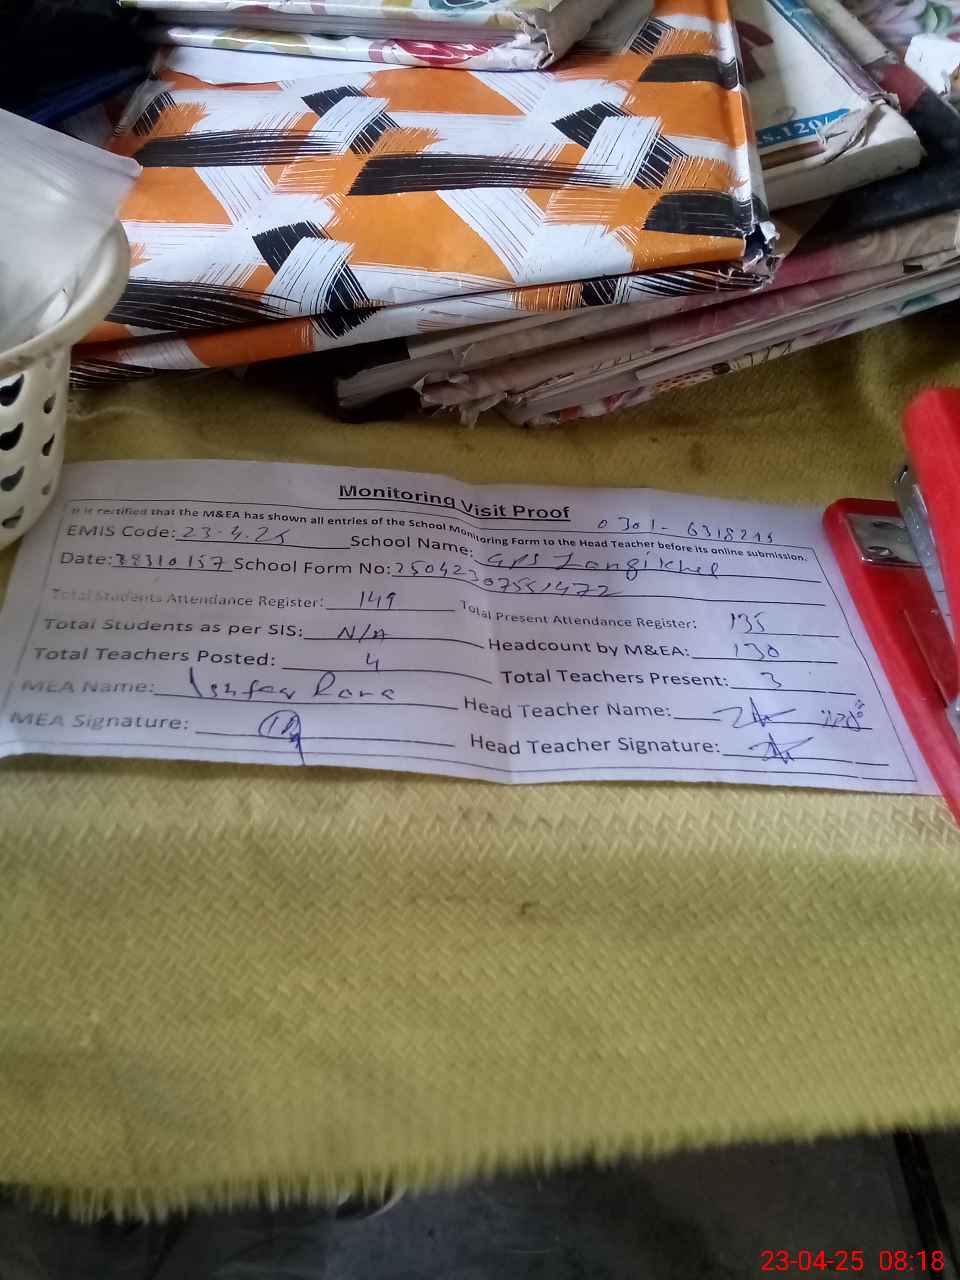 S.120/
Monitoring Visit Proof
0301-6318215
It is certified that the M&EA has shown all entries of the School Monitoring Form to the Head Teacher before its online submission.
EMIS Code: 23.4.25 School Name: GPS Langikhel
Date: 38310157 School Form No: 25042307551472
Total Students Attendance Register: 149 Total Present Attendance Register: 135
Total Students as per SIS: N/A Headcount by M&EA: 130
Total Teachers Posted: 4 Total Teachers Present: 3
MEA Name: Head Teacher Name:
MEA Signature: Head Teacher Signature:
23-04-25 08:18